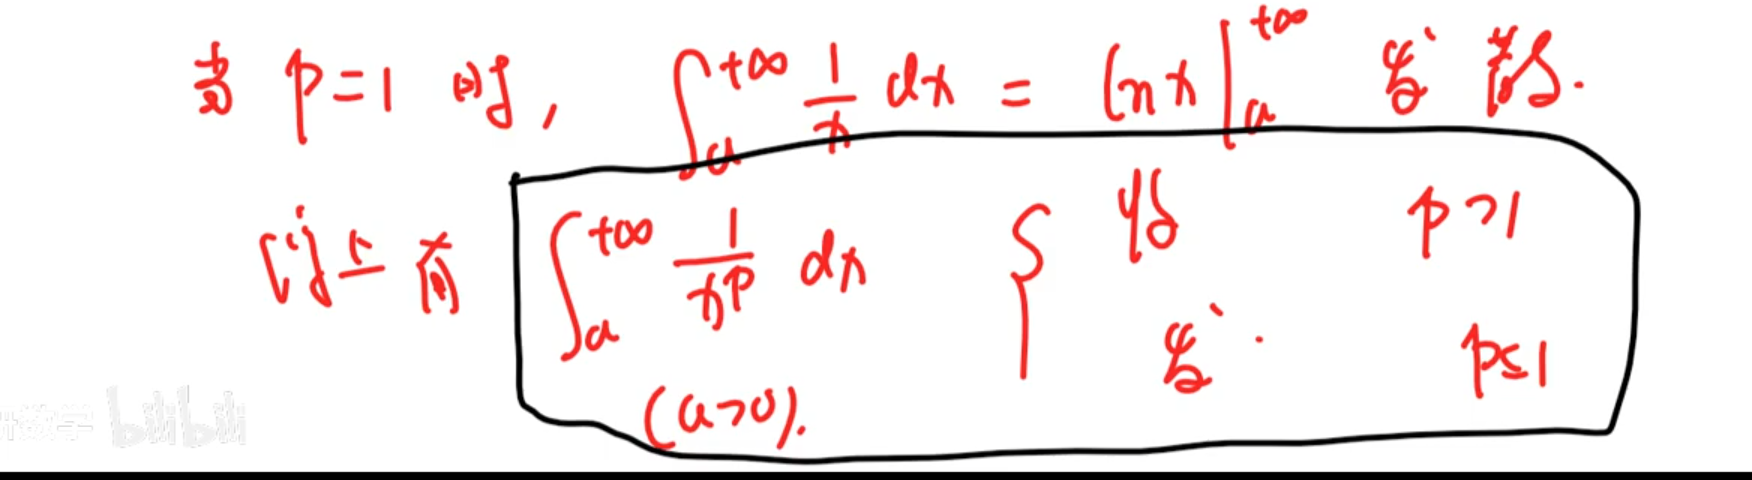 当 p=1 时, ∫_a^{+∞} 1/x dx = ln x |_a^{+∞} 发散.
综上有 ∫_a^{+∞} 1/x^p dx { 收 p>1
发. p≤1
(a>0).
研数学 bilibili